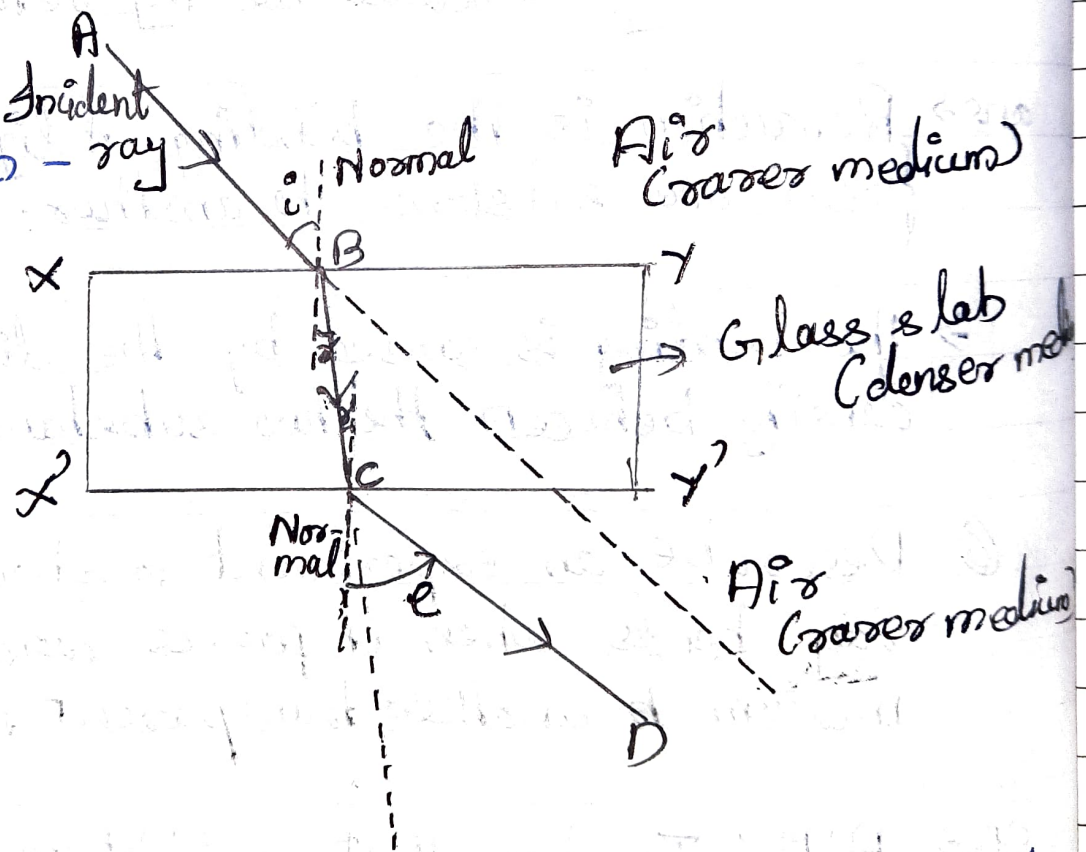 A
Incident
ray
Normal
i
Air
(rarer medium)
B
X
Y
r
Glass slab
(denser med
r
C
X'
Y'
Nor-
mal
e
Air
(rarer medium)
D